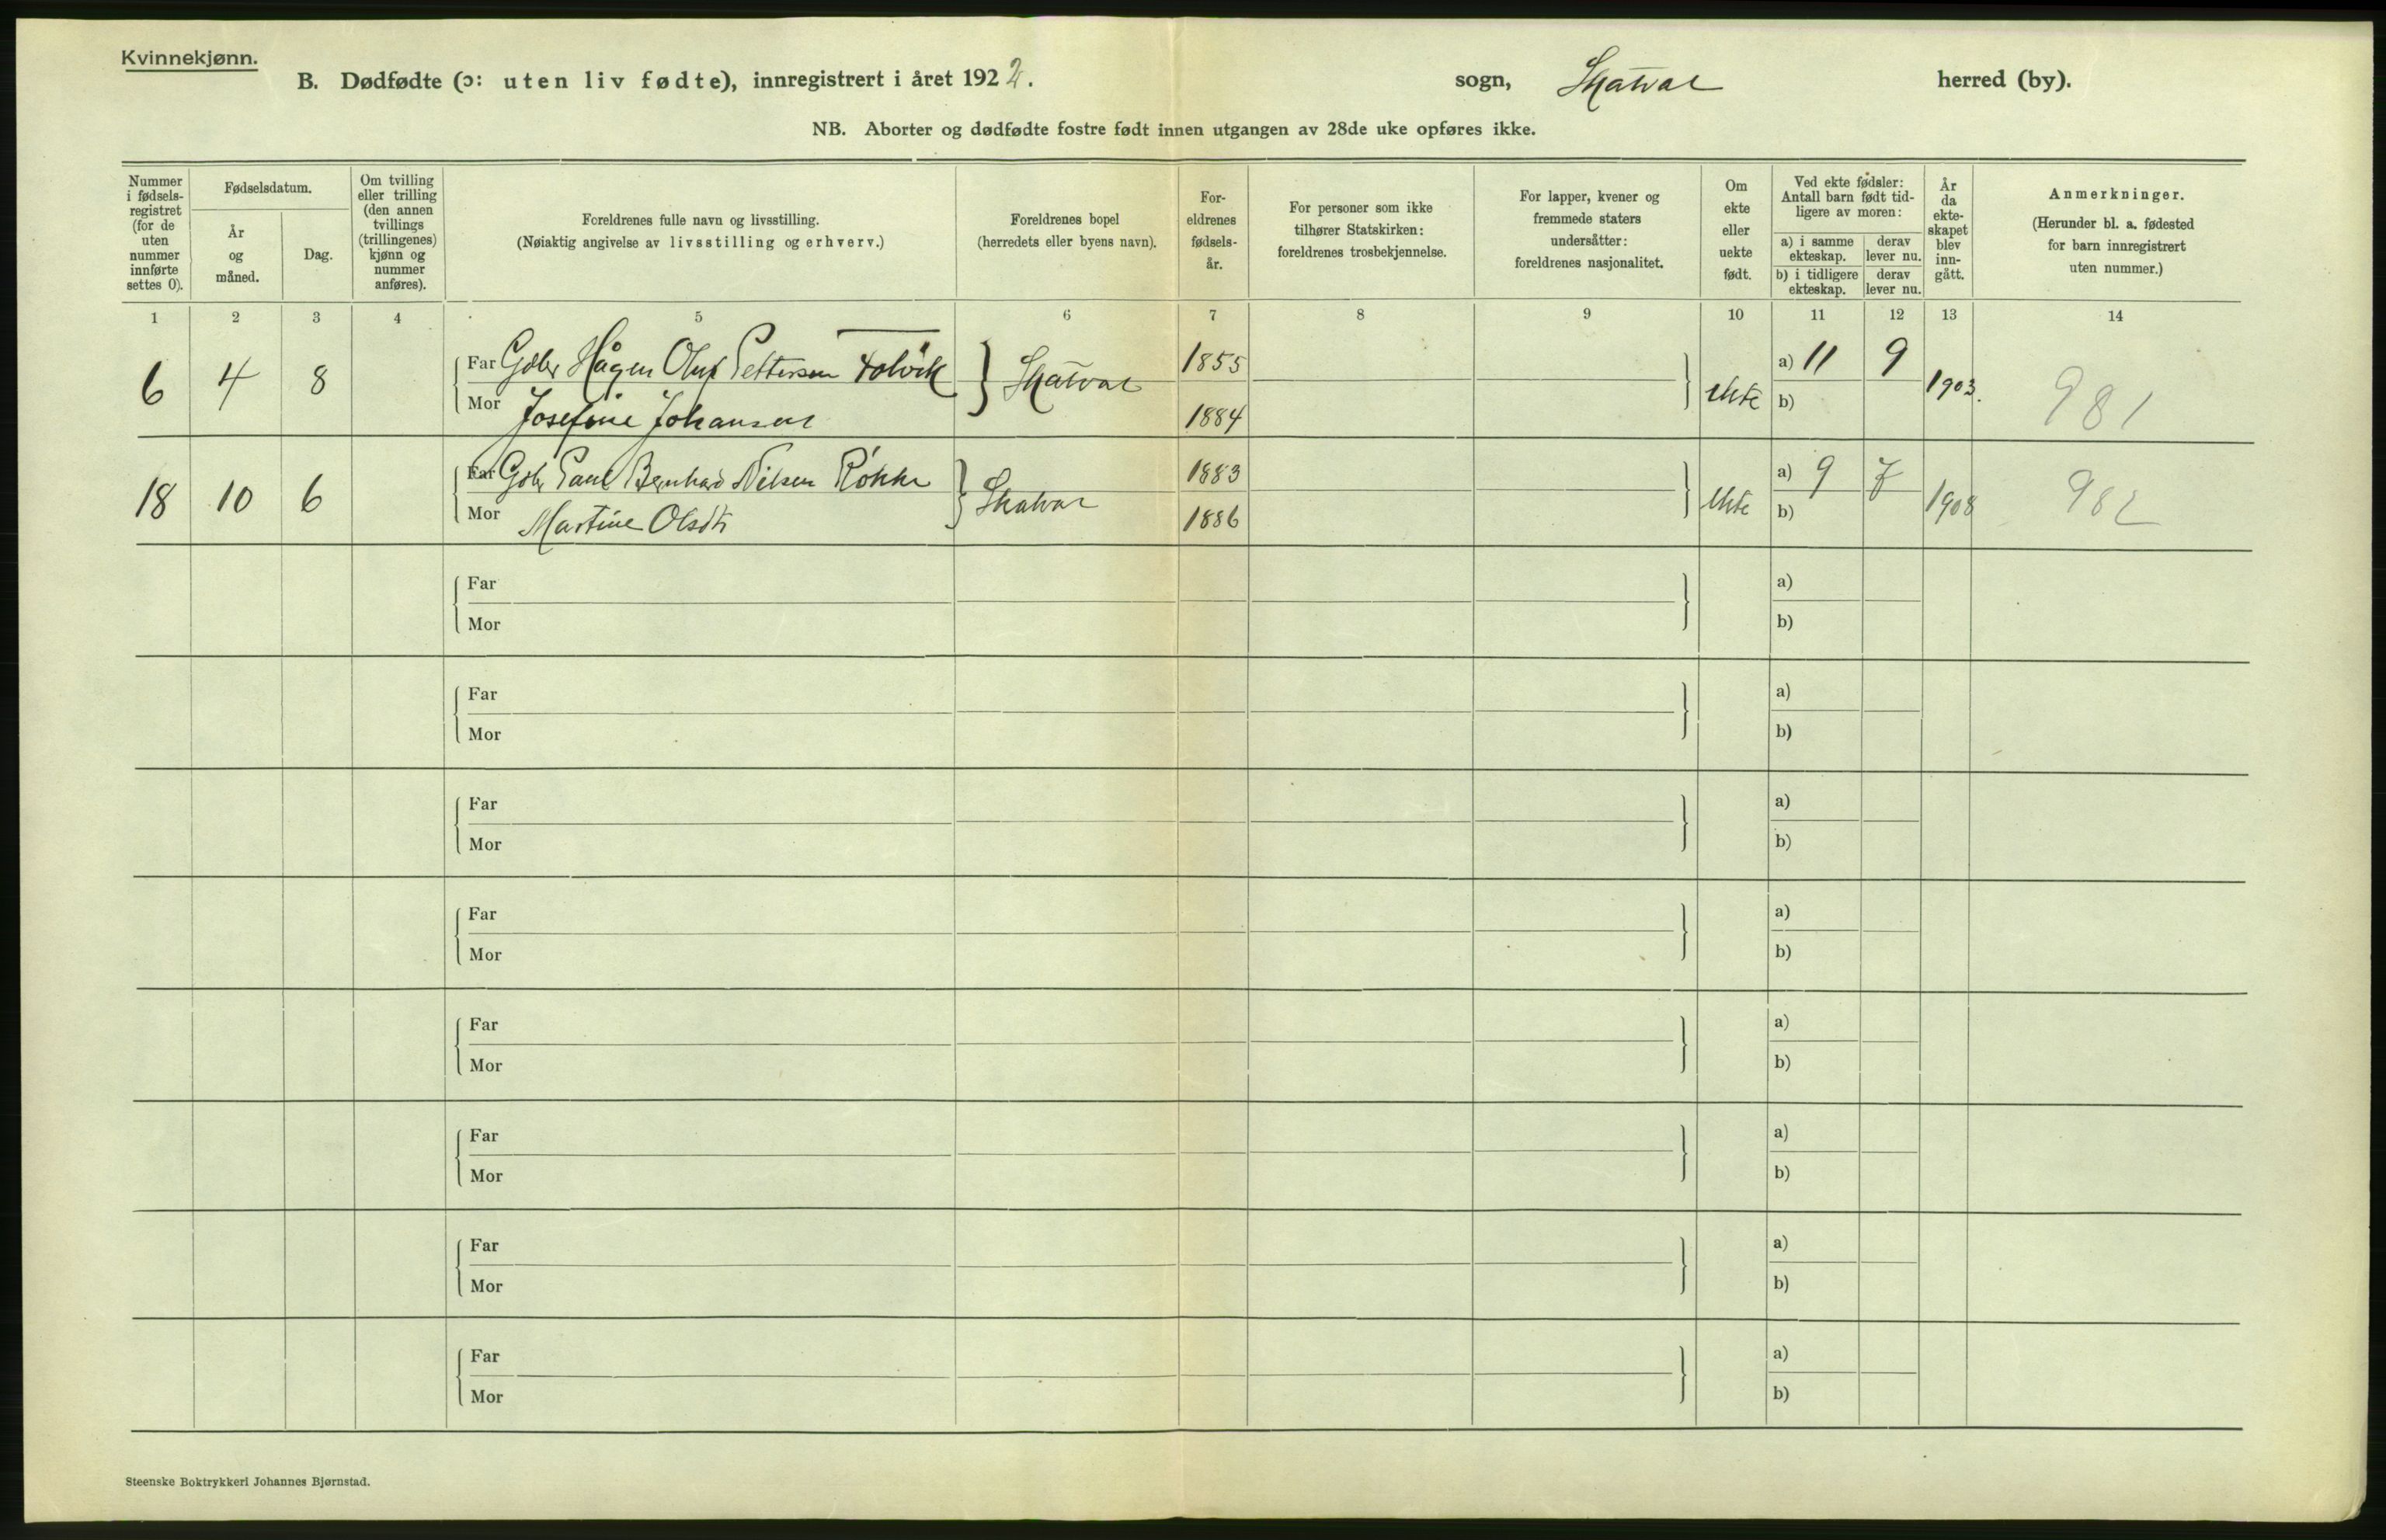 Kvinnekjønn.
B. Dødfødte (ɔ: uten liv fødte), innregistrert i året 1922. sogn, Skatval herred (by).
NB. Aborter og dødfødte fostre født innen utgangen av 28de uke opføres ikke.
Nummer i fødsels-registret (for de uten nummer innførte settes 0).
Fødselsdatum.
År og måned.
Dag.
Om tvilling eller trilling (den annen tvillings (trillingenes) kjønn og nummer anføres).
Foreldrenes fulle navn og livsstilling.
(Nøiaktig angivelse av livsstilling og erhverv.)
Foreldrenes bopel
(herredets eller byens navn).
For-eldrenes fødsels-år.
For personer som ikke tilhører Statskirken: foreldrenes trosbekjennelse.
For lapper, kvener og fremmede staters undersåtter: foreldrenes nasjonalitet.
Om ekte eller uekte født.
Ved ekte fødsler: Antall barn født tid-ligere av moren:
a) i samme ekteskap. derav lever nu.
b) i tidligere ekteskap. derav lever nu.
År da ekte-skapet blev inn-gått.
Anmerkninger.
(Herunder bl. a. fødested for barn innregistrert uten nummer.)
1 2 3 4 5 6 7 8 9 10 11 12 13 14
6 4 8 Far Gdbr Hågen Oluf Pettersen Folvik } Skatval 1855 ekte a) 11 9 1903. 981
Mor Josefine Johansen 1884 b)
18 10 6 Far Gdbr Paul Bernhard Nilsen Røkke } Skatval 1883 ekte a) 9 7 1908 982
Mor Martine Olsdtr 1886 b)
Far a)
Mor b)
Far a)
Mor b)
Far a)
Mor b)
Far a)
Mor b)
Far a)
Mor b)
Far a)
Mor b)
Far a)
Mor b)
Far a)
Mor b)
Steenske Boktrykkeri Johannes Bjørnstad.